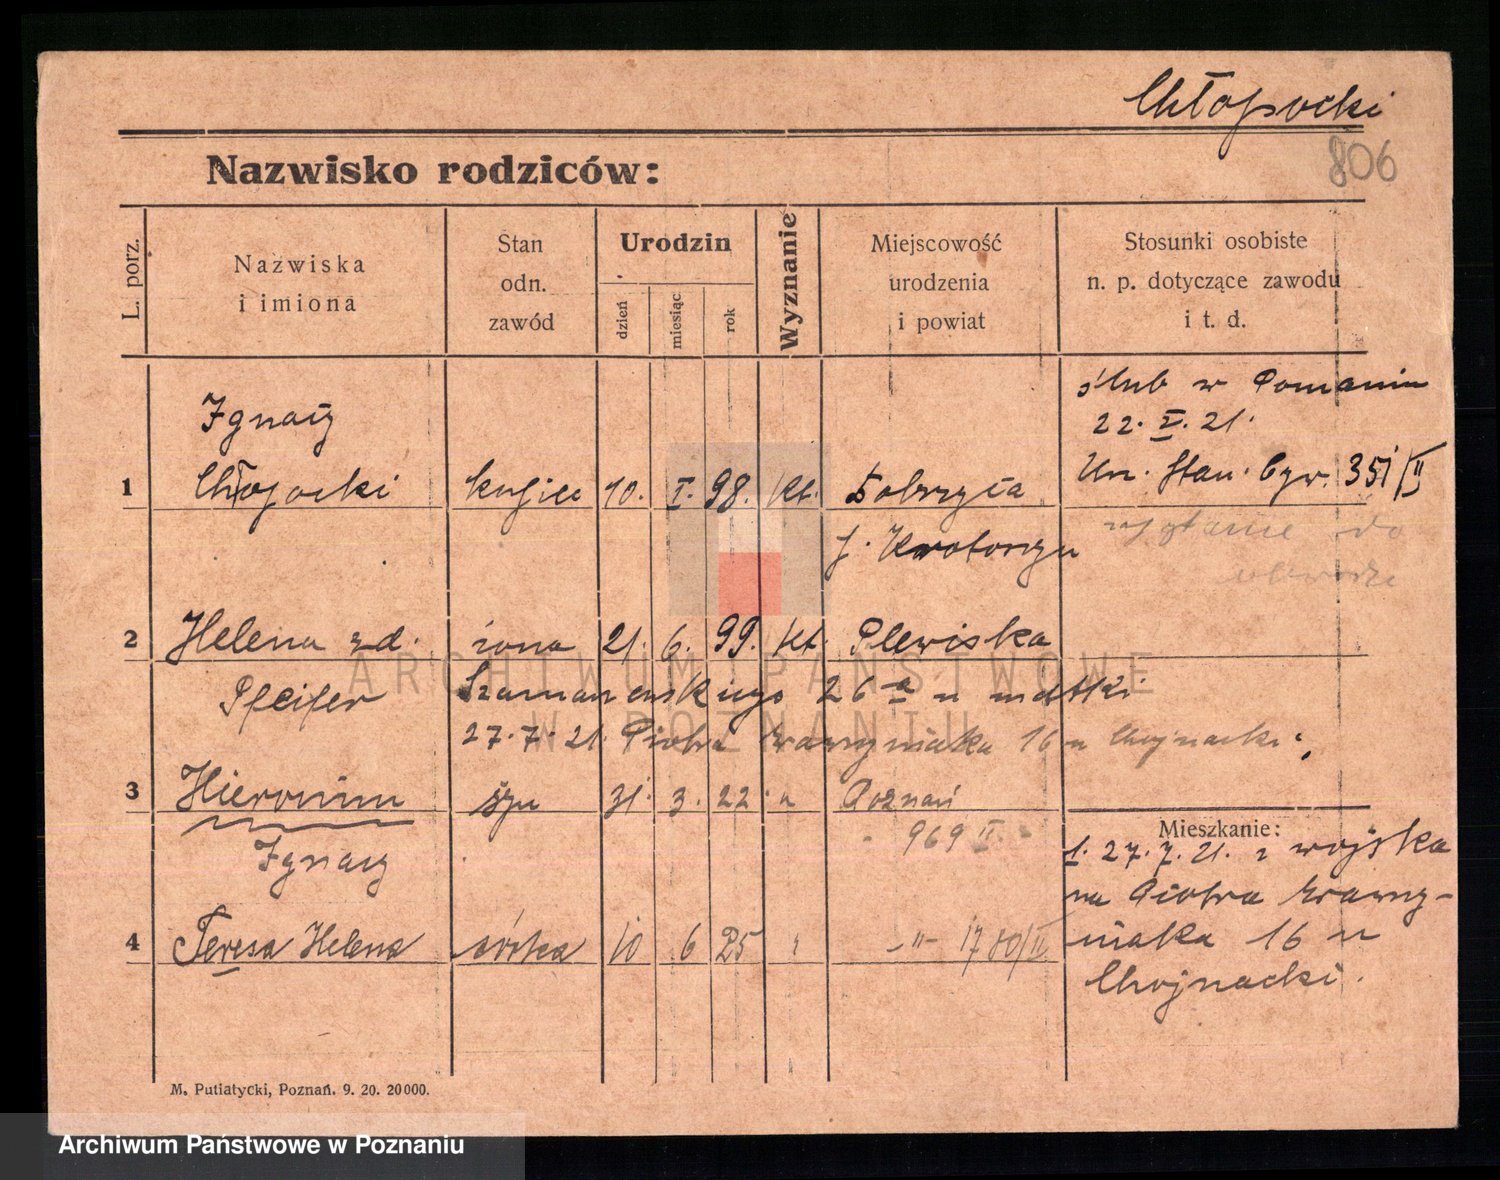 Chłopocki
806
Nazwisko rodziców:
L. porz.
Nazwiska
i imiona
Stan
odn.
zawód
Urodzin
dzień
miesiąc
rok
Wyznanie
Miejscowość
urodzenia
i powiat
Stosunki osobiste
n. p. dotyczące zawodu
i t. d.
ślub w Poznaniu
22. V. 21.
Ignacy
1 Chłopocki kupiec 10. I. 98. kt. Dobrzyca
Urz. Stan. 351/II
2 Helena zd. żona 21. 6. 99. kt. Plewiska
Pfeifer
26a u matki
27. 7. 21. Piotra Wawrzyniaka 16 u Chojnacki
3 Hieronim syn 31. 3. 22. " Poznań
969 II.
Ignacy
4 Teresa Helena córka 10 6 25 " -"- 1780/II
Mieszkanie:
1. 27. 7. 21. z wojska
na Piotra Wawrzy-
niaka 16 u
Chojnacki.
M. Putiatycki, Poznań. 9. 20. 20000.
ARCHIWUM PAŃSTWOWE
W POZNANIU
Archiwum Państwowe w Poznaniu